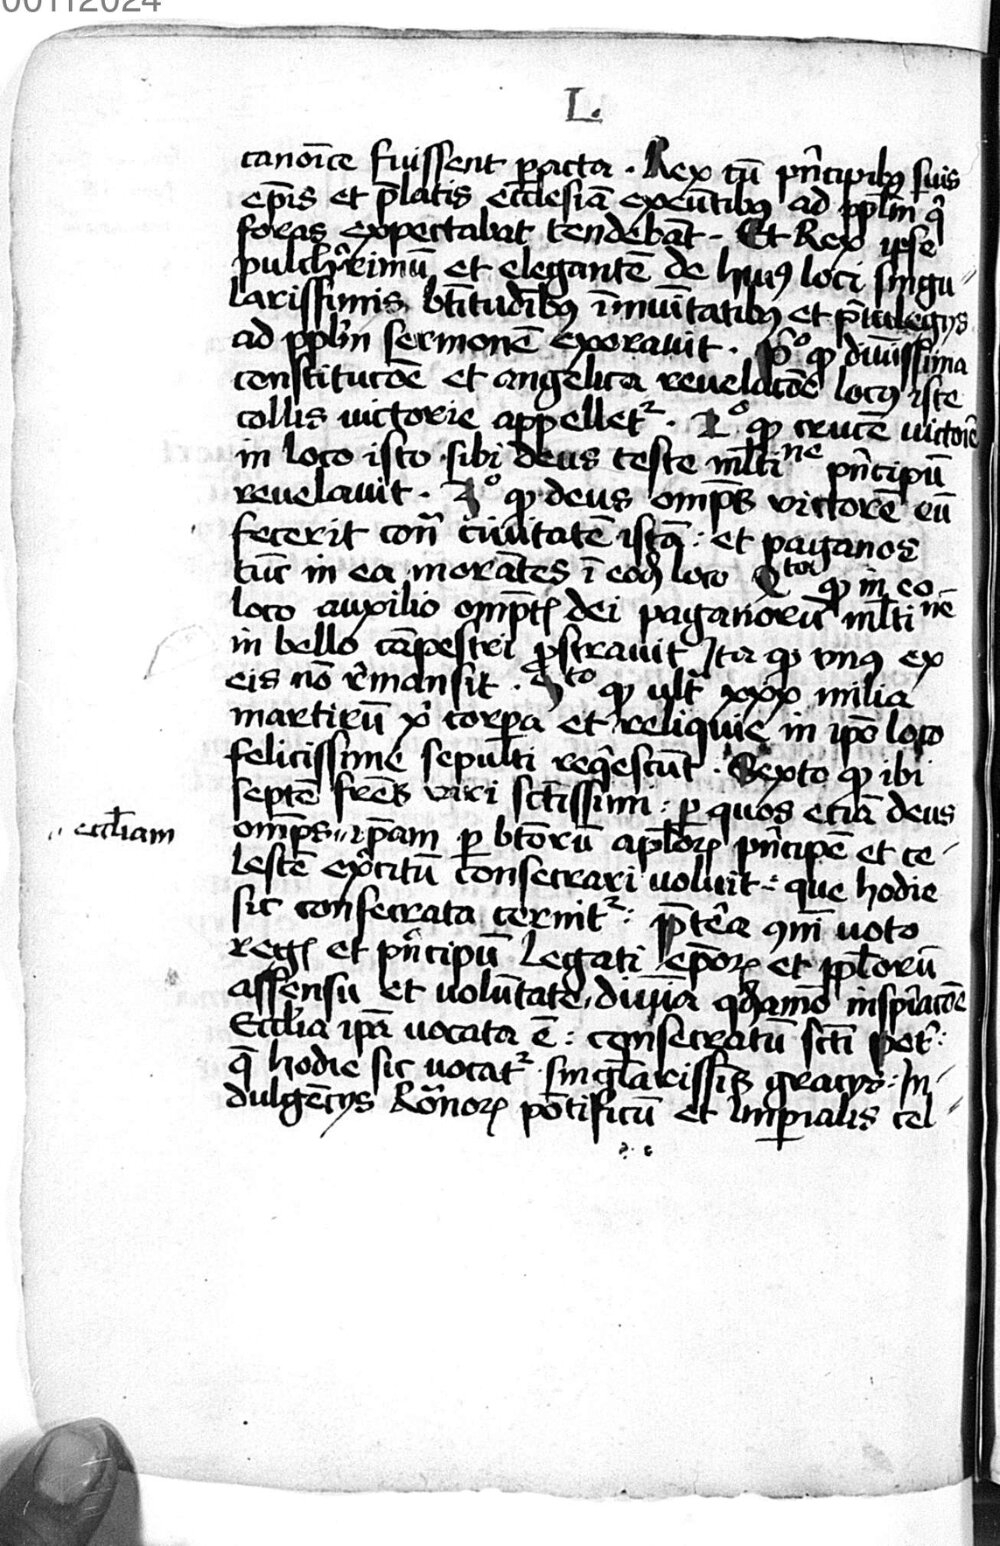 00112024
L.
canoīce fuissent pacta . Rex cū pn̄cipibꝫ suis
ep̄is et p̄latis ecc̄lesiā exeūtibꝫ ad pp̄lm q̄
foras expectabat tendebāt . Et Rex ip̄se
pulchͬrimū et elegantē de huiꝰ loci singu
larissimis btītudībꝫ īmuītatibꝫ et p̄iulegijs
ad pp̄lm sermonē exorauit . pͦ ꝙ diuīssima
constitucōe et angelica reuelacōe locꝰ iste
collis victorie appelletᷣ . 2ͦ ꝙ crucē victorie
in loco isto sibi deus teste ml̄tine pn̄cipū
reuelauit . 3ͦ ꝙ deus omp̄s victorē eū
fecerit con̄ ciuitatē istā : et paganos
tūc in ea morātes ī eodē loco Qtoi ꝙ in eo
loco auxilio omp̄tꝭ dei paganorū ml̄tinē
in bello cāpestri ꝓstrauit Ita ꝙ vnꝰ ex
eis nō r̄mansit . Qto ꝙ ult̄ xxx milia
martirū xp̄i corpa et reliquie in ip̄o loco
felicissime sepulti req̄escūt . Sexto ꝙ ibi
septē fr̄es viri sct̄issimi : ꝑ quos etiā deus
ecc̄liam
omp̄s ip̄am ꝑ bt̄orū apl̄oꝝ pn̄cipē et ce
lestē ex̄citū consecrari voluit : que hodie
sic consecrata cernitᷣ : p̄tēa ꝯmī voto
regꝭ et pn̄cipū Legati ep̄oꝝ et pp̄lorū
assensu et volūtate diuīa qͣdamō inspiracōe
Ecc̄lia ip̄a vocata ē : consecratū sct̄i pet̄ :
q̄ hodie sic vocatᷣ singl̄arissīs gracijs : In
dulgēcijs Rōnoꝝ pōtificū et Imꝑialis cel